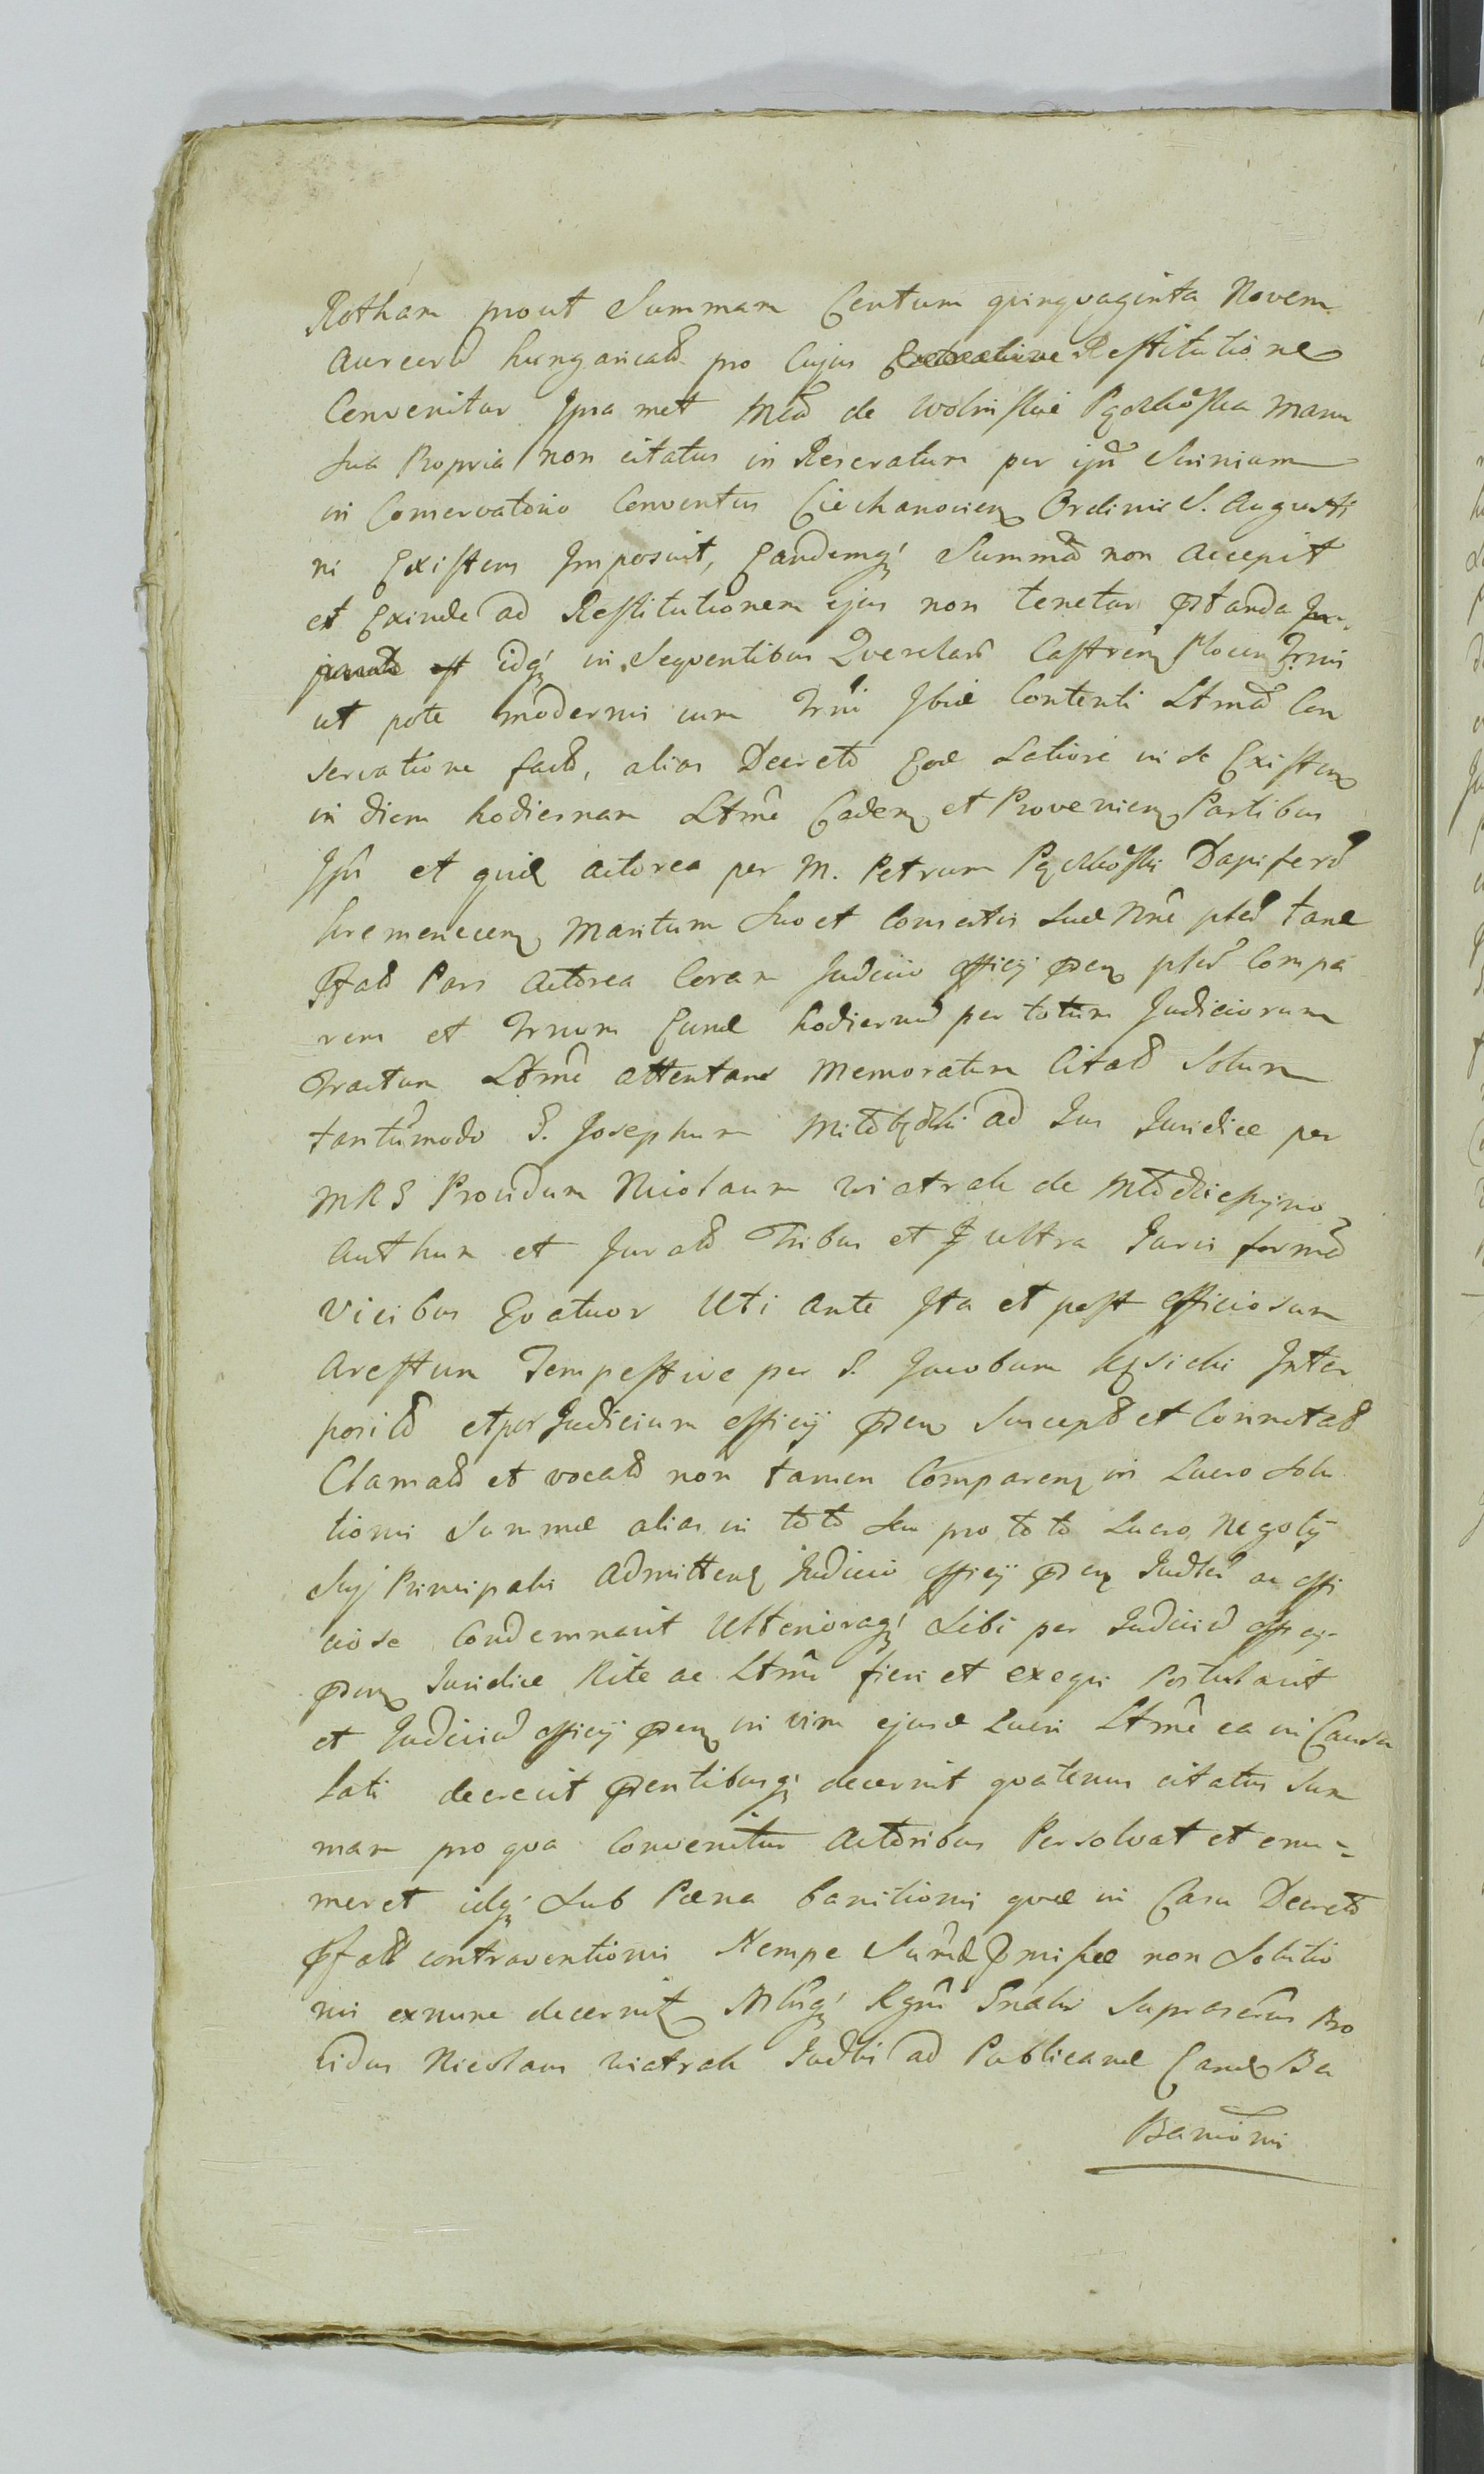 Rotham prout Summam Centum qvinqvaginta Novem
Aureorū hungaricalū pro Cujus Restitutione
Convenitur Ipsa met Mca de Wolinskie manu
Sua Propria non citatus in Reseratum per ipsū Scrinium
in Conservatorio Conventus Ciechanovien Ordinis S. Augusti
ni Existens Imposuit, Eandemq Summā non Accepit
et Exinde ad Restitutionem ejus non tenetur pstanda
idq in Seqventibus Qverelarū Castren Plocen Trmis
ut pote modernis cum Trmi Ibid Contenti Ltmā Con
servatione facta, alias Decreto Eod Latiori in se Existen
in diem hodiernam Ltme Caden et Provenien Partibus
Ipsis et quid Actorea per M. Petrum Dapiferū
Kremenecen Maritum Suo et Consortis Suæ Nne tand
Pfata Pars Actorea Coram Judicio Officij psen Compa
rens et Trnum Eund hodiernū per totum Judiciorum
Tractum Ltme attentans Memoratum Citatū Solum
tantūmodo G. Josephum ad Jus Juridice per
MRG Providum Nicolaum Wiatrak de
Authen et Juratū Tribus et ultra Juris formā
Vicibus Qvatuor Uti Ante Ita et post Officiosum
Arestum Tempestive per G. Jacobum Inter
positū et per Judicium officij psen Susceptū et Connotatū
Clamatū et vocatū non tamen Comparen in Lucro Solu
tionis Summæ alias in toto seu pro toto Lucro Negotij
Suj Principalis Admitten Judicio officij psen Judtr ac offi
ciose Condemnavit Ulterioraq Sibi per Judiciū officij
psen Juridice Rite ac Ltme fieri et exeqvi Postulavit
et Judiciū officij psen in vim ejusd Lucri Ltme ea in Causa
lati decrevit psentibusq decernit qvatenus citatus Sum
mam pro qva Convenitur Actoribus Persolvat et enu=
meret idq Sub Pæna banitionis qvæ in Casu Decreto
Pfato contraventionis Nempe Sumæ Pmissæ non Solutio
nis exnunc decernit Mstrq Rgni Gnalis Suprascrius Pro
vidus Nicolaus Wiatrak Judtr ad Publicand Eand Ba
Banionis